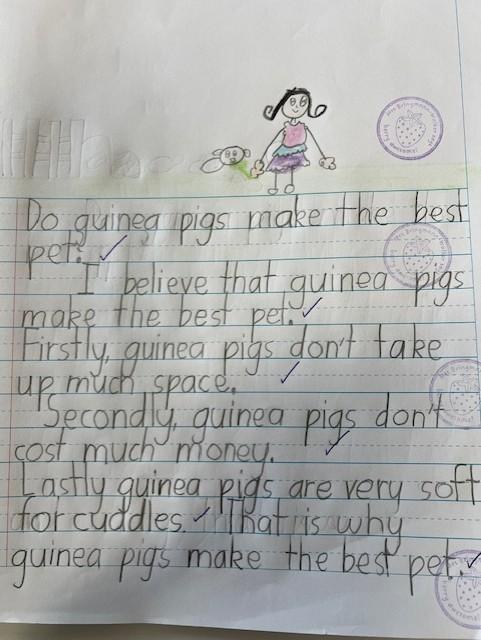 Do guinea pigs make the best
pet?
I believe that guinea pigs
make the best pet.
Firstly, guinea pigs don't take
up much space.
Secondly, guinea pigs don't
cost much money.
Lastly guinea pigs are very soft
for cuddles. That is why
guinea pigs make the best pet.